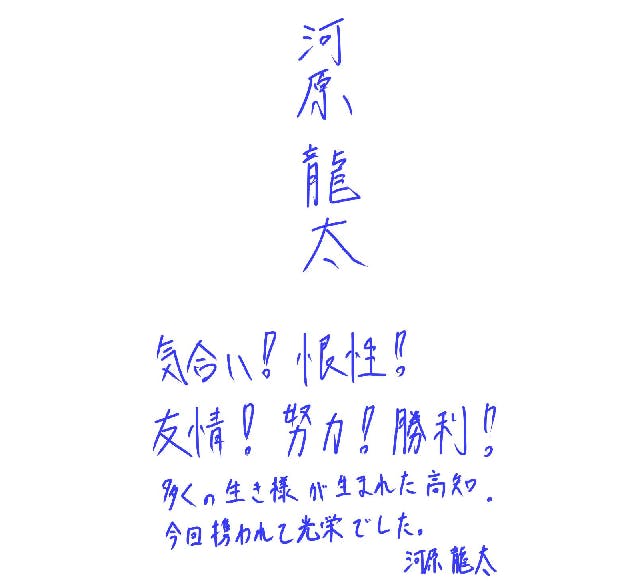 河原龍太
気合い！恨性！
友情！努力！勝利！
多くの生き様が生まれた高知.
今回携われて光栄でした。
河原龍太